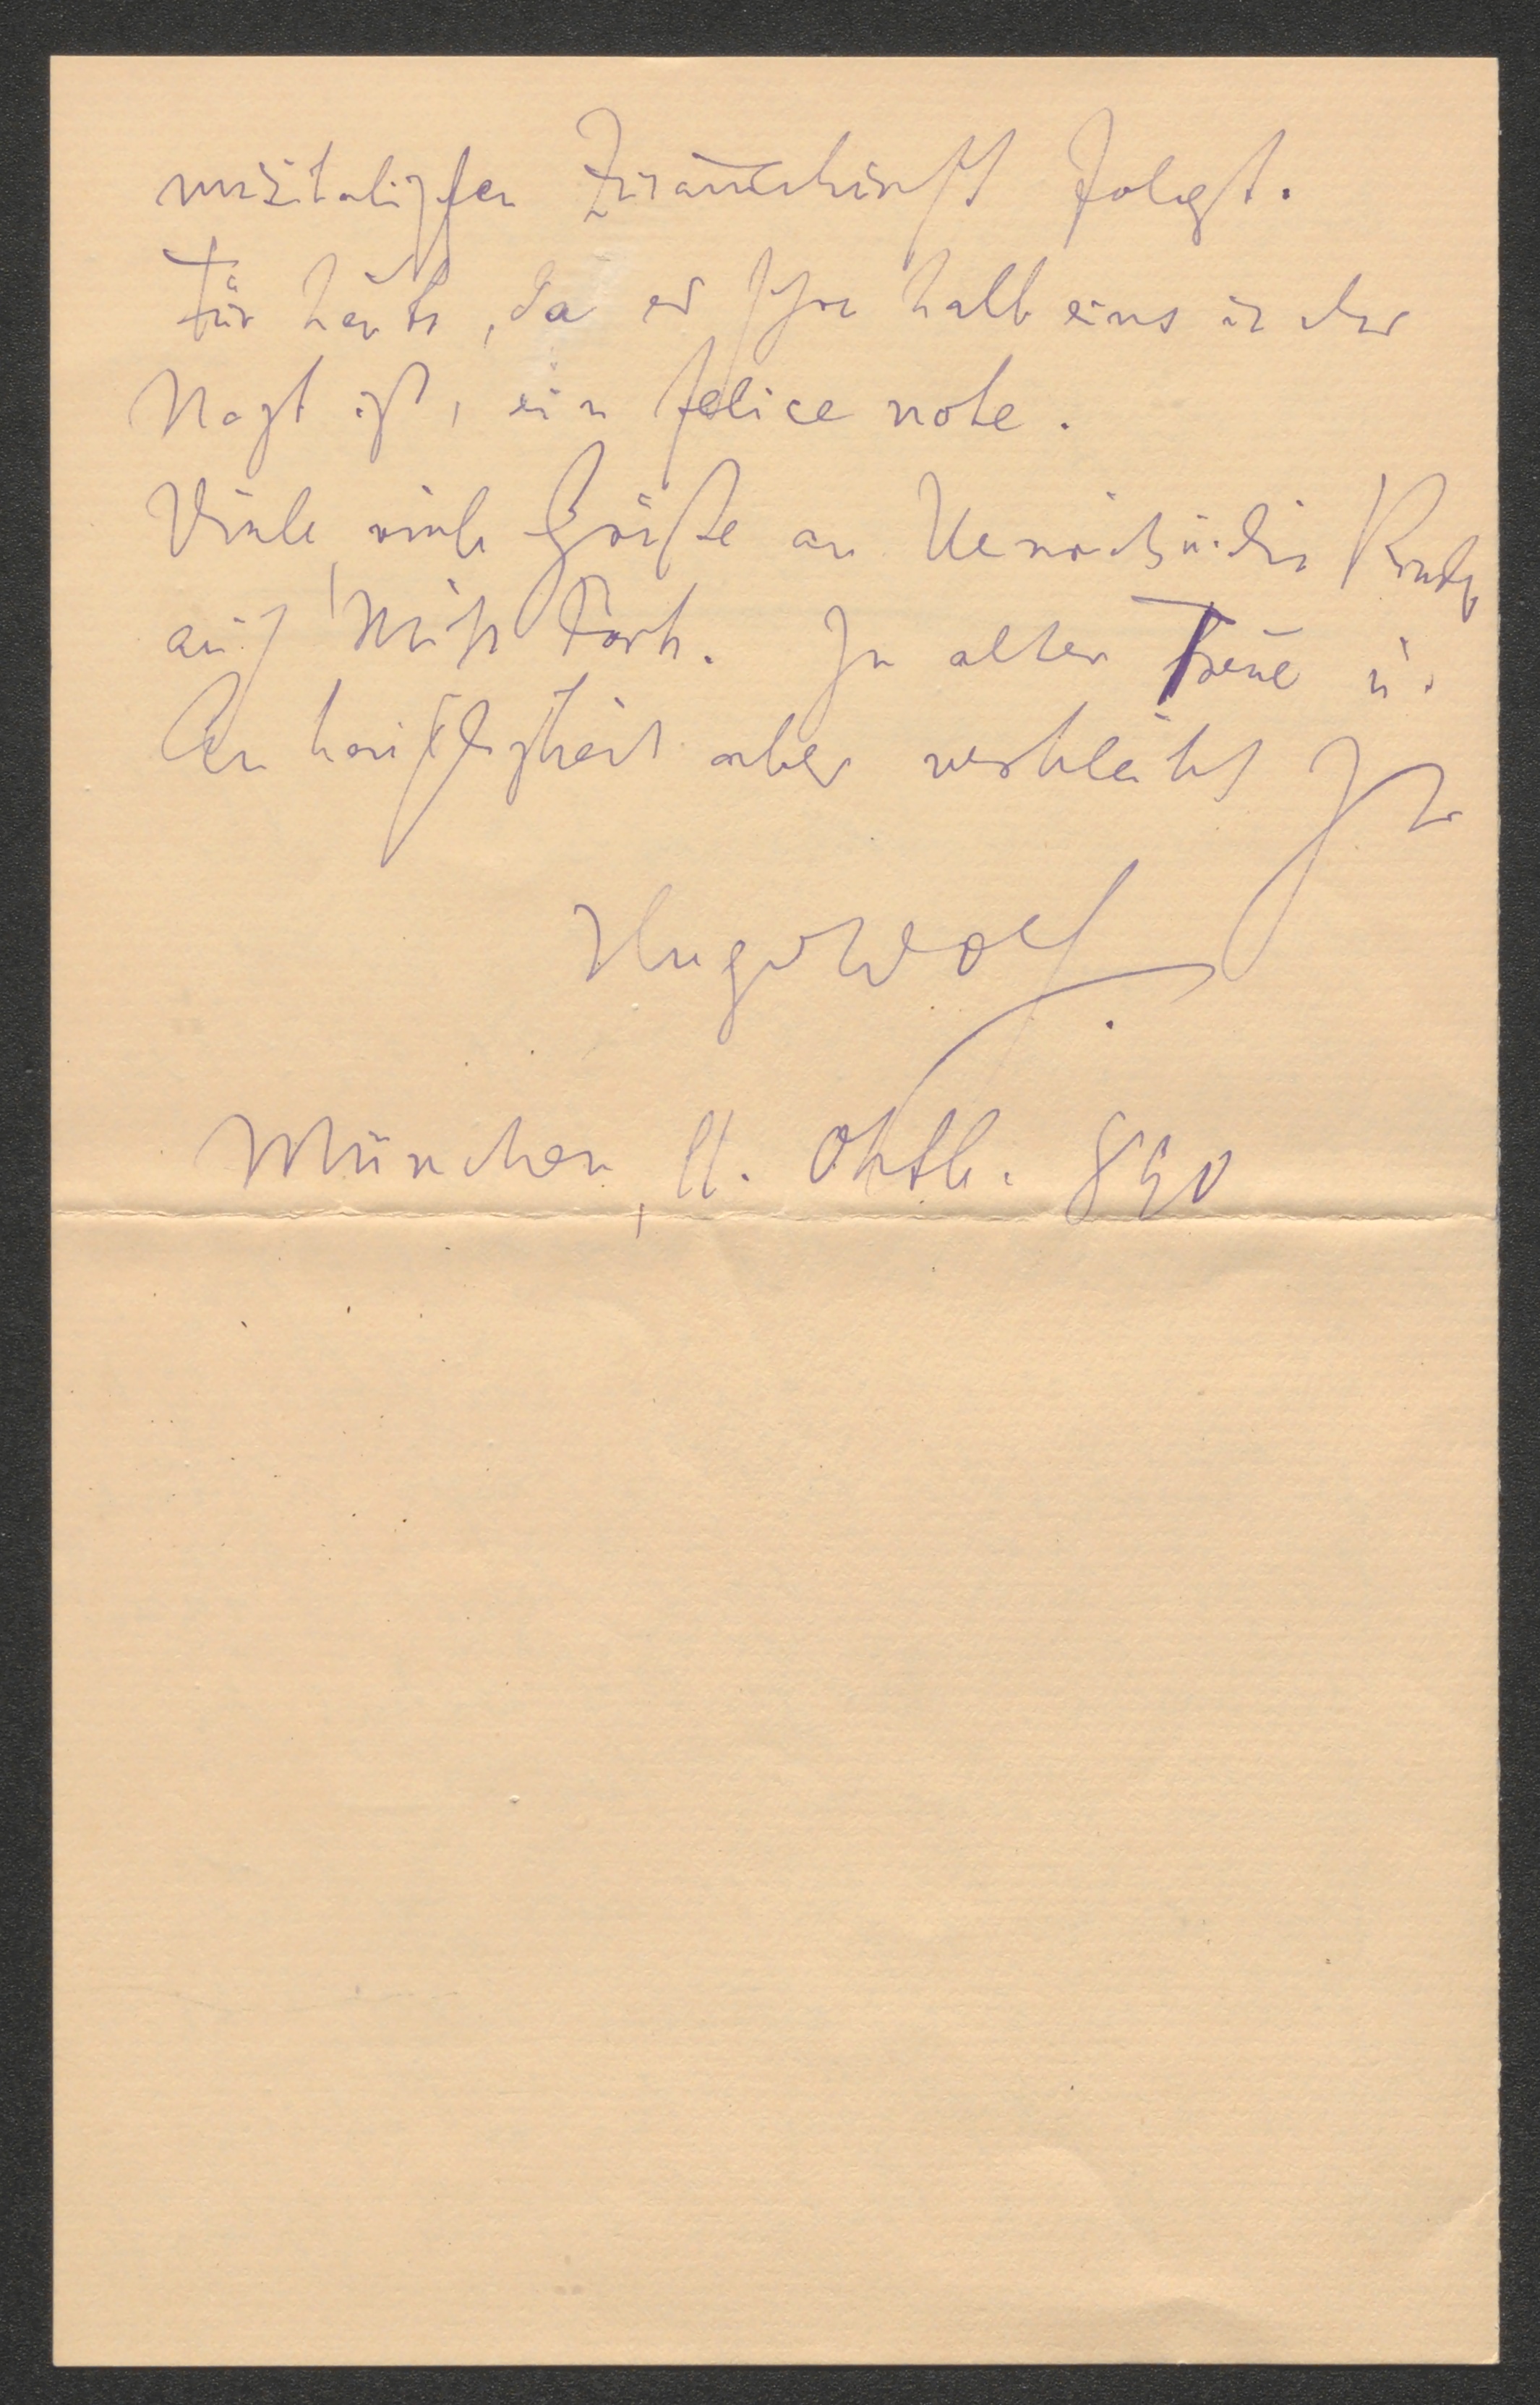 musikalischen Zusammenkunft folgt.
Für heute, da es schon halb eins in der
Nacht ist, ein felice note.
Viele, viele Grüße an u. die
auch Miss Park. In alter Treue u.
Anhänglichkeit aber verbleibt Ihr
Hugo Wolf
München, 11. Oktb. 890